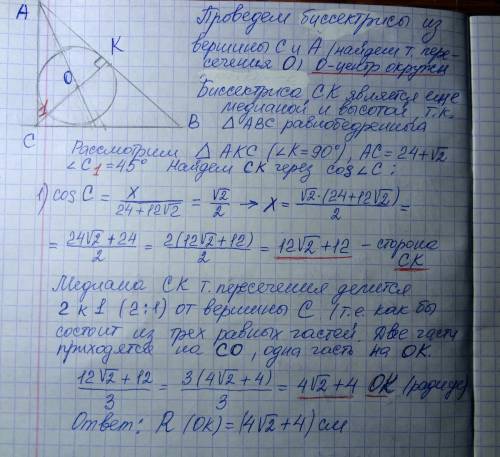 Проведем биссектрисы из
вершины С и А (найдем т. пере-
сечения О) О-центр окружн
Биссектриса СК является еще
медианой и высотой т.к.
△ АВС равнобедренный
A
K
O
1
C
B
Рассмотрим △ АКС (∠К=90°), АС = 24+√2
∠C1=45° Найдем СК через cos∠C:
1) cos C = x/(24+12√2) = √2/2 → x = √2·(24+12√2)/2 =
= (24√2+24)/2 = 2(12√2+12)/2 = 12√2+12 – сторона
СК
Медиана СК т. пересечения делится
2 к 1 (2:1) от вершины С (т.е как бы
состоит из трех равных частей. Две части
приходятся на СО, одна часть на ОК.
(12√2+12)/3 = 3(4√2+4)/3 = 4√2+4 ОК (радиус)
Ответ: R (ОК) = (4√2+4) см